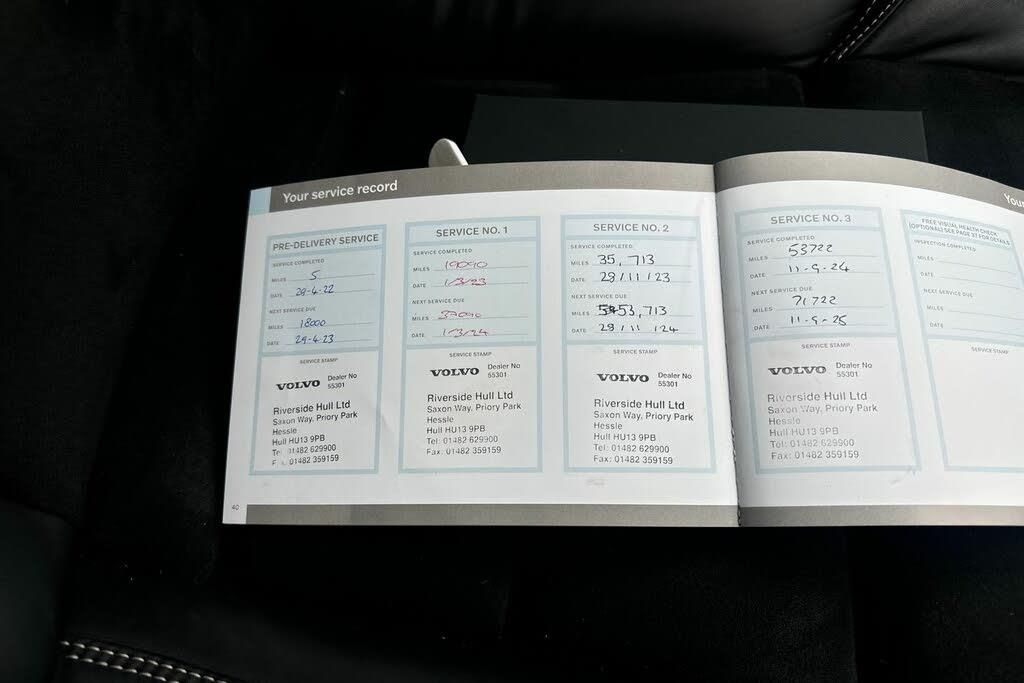 Your service record
PRE-DELIVERY SERVICE
SERVICE COMPLETED
MILES 5
DATE 29-4-22
NEXT SERVICE DUE
MILES 18000
DATE 29-4-23
SERVICE STAMP
VOLVO Dealer No
55301
Riverside Hull Ltd
Saxon Way, Priory Park
Hessle
Hull HU13 9PB
Tel: 01482 629900
F : 01482 359159
SERVICE NO. 1
SERVICE COMPLETED
MILES 19090
DATE 1/3/23
NEXT SERVICE DUE
MILES 37090
DATE 1/3/24
SERVICE STAMP
VOLVO Dealer No
55301
Riverside Hull Ltd
Saxon Way, Priory Park
Hessle
Hull HU13 9PB
Tel: 01482 629900
Fax: 01482 359159
SERVICE NO. 2
SERVICE COMPLETED
MILES 35,713
DATE 29/11/23
NEXT SERVICE DUE
MILES 53,713
DATE 29/11/24
SERVICE STAMP
VOLVO Dealer No
55301
Riverside Hull Ltd
Saxon Way, Priory Park
Hessle
Hull HU13 9PB
Tel: 01482 629900
Fax: 01482 359159
40
You
SERVICE NO. 3
SERVICE COMPLETED
MILES 53722
DATE 11-9-24
NEXT SERVICE DUE
MILES 71722
DATE 11-9-25
SERVICE STAMP
VOLVO Dealer No
55301
Riverside Hull Ltd
Saxon Way, Priory Park
Hessle
Hull HU13 9PB
Tel: 01482 629900
Fax: 01482 359159
FREE VISUAL HEALTH CHECK
(OPTIONAL) SEE PAGE 37 FOR DETAILS
INSPECTION COMPLETED
MILES
DATE
NEXT SERVICE DUE
MILES
DATE
SERVICE STAMP